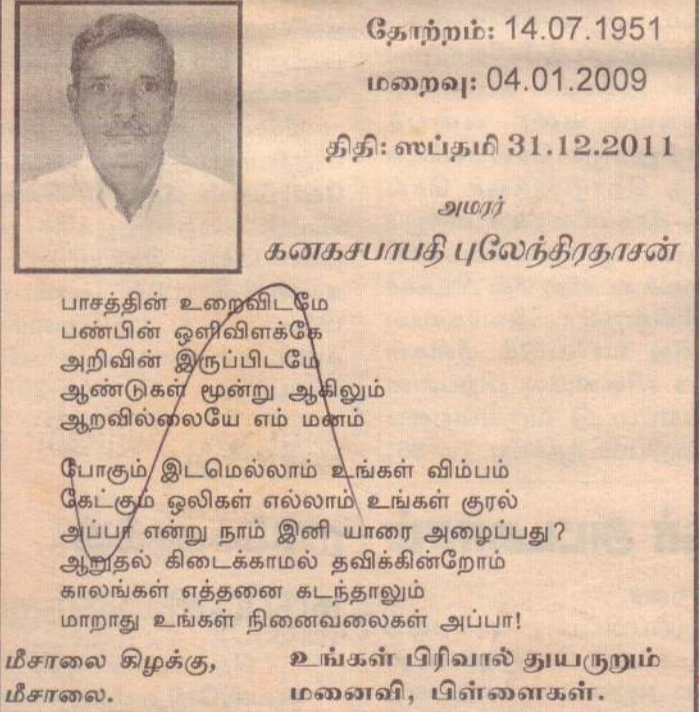 தோற்றம்: 14.07.1951
மறைவு: 04.01.2009
திதி: ஸப்தமி 31.12.2011
அமரர்
கனகசபாபதி புலேந்திரதாசன்
பாசத்தின் உறைவிடமே
பண்பின் ஒளிவிளக்கே
அறிவின் இருப்பிடமே
ஆண்டுகள் மூன்று ஆகிலும்
ஆறவில்லையே எம் மனம்
போகும் இடமெல்லாம் உங்கள் விம்பம்
கேட்கும் ஒலிகள் எல்லாம் உங்கள் குரல்
அப்பா என்று நாம் இனி யாரை அழைப்பது?
ஆறுதல் கிடைக்காமல் தவிக்கின்றோம்
காலங்கள் எத்தனை கடந்தாலும்
மாறாது உங்கள் நினைவலைகள் அப்பா!
மீசாலை கிழக்கு, உங்கள் பிரிவால் துயருறும்
மீசாலை. மனைவி, பிள்ளைகள்.